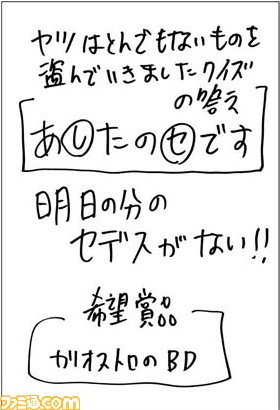 ヤツはとんでもないものを
盗んでいきましたクイズ
の答え
あしたのセです
明日の分の
セデスがない!!
希望賞品
カリオストロのBD
ファミ通.com